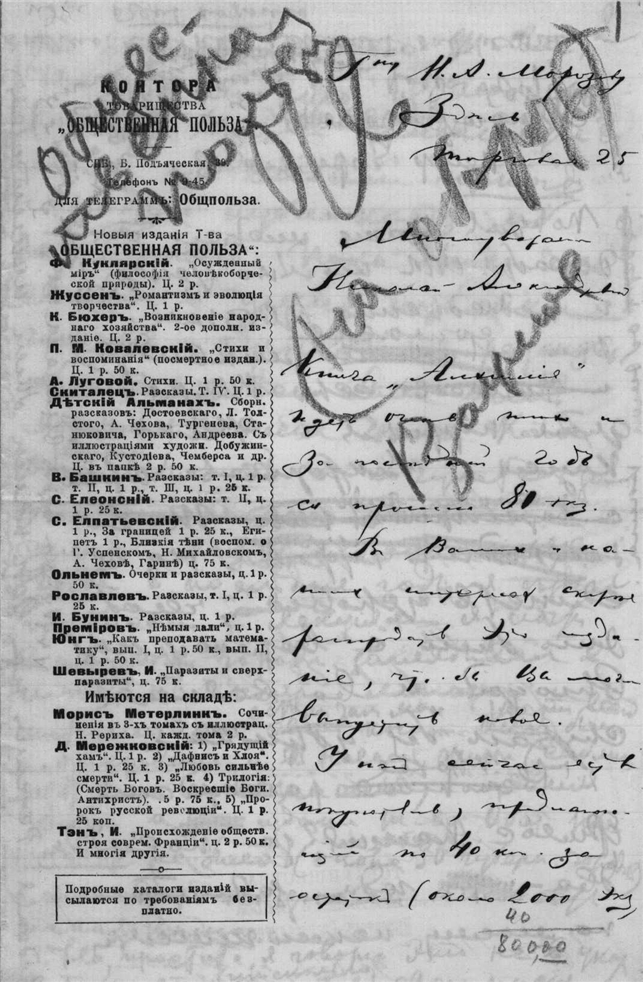 КОНТОРА
ТОВАРИЩЕСТВА
„ОБЩЕСТВЕННАЯ ПОЛЬЗА".
СПБ., Б. Подъяческая, 39.
Телефонъ № 9-45.
ДЛЯ ТЕЛЕГРАММЪ: Общпольза.
Новыя изданія Т-ва
„ОБЩЕСТВЕННАЯ ПОЛЬЗА":
Ф. Куклярскій. „Осужденный
міръ" (философія человѣкоборче-
ской природы). Ц. 2 р.
Жуссенъ. „Романтизмъ и эволюція
творчества". Ц. 1 р.
К. Бюхеръ. „Возникновеніе народ-
наго хозяйства". 2-ое дополн. из-
даніе. Ц. 2 р.
П. М. Ковалевскій. „Стихи и
воспоминанія" (посмертное издан.).
Ц. 1 р. 50 к.
А. Луговой. Стихи. Ц. 1 р. 50 к.
Скиталецъ. Разсказы. Т. IV. Ц. 1 р.
Дѣтскій Альманахъ. Сборн.
разсказовъ: Достоевскаго, Л. Тол-
стого, А. Чехова, Тургенева, Ста-
нюковича, Горькаго, Андреева. Съ
иллюстраціями художн. Добужин-
скаго, Кустодіева, Чемберса и др.
Ц. въ папкѣ 2 р. 50 к.
В. Башкинъ. Разсказы: т. I, ц. 1 р.
т. II, ц. 1 р., т. III, ц. 1 р. 25 к.
С. Елеонскій. Разсказы: т. II, ц.
1 р. 25 к.
С. Елпатьевскій. Разсказы, ц.
1 р., За границей 1 р. 25 к., Еги-
петъ 1 р., Близкія тѣни (воспом. о
Г. Успенскомъ, Н. Михайловскомъ,
А. Чеховѣ, Гаринѣ) ц. 75 к.
Ольнемъ. Очерки и разсказы, ц. 1 р.
50 к.
Рославлевъ. Разсказы, т. I, ц. 1 р.
25 к.
И. Бунинъ. Разсказы, ц. 1 р.
Преміровъ. „Нѣмыя дали", ц. 1 р.
Юнгъ. „Какъ преподавать матема-
тику", вып. I, ц. 1 р. 50 к., вып. II,
ц. 1 р. 50 к.
Шевыревъ, И. „Паразиты и сверх-
паразиты", ц. 75 к.
Имѣются на складѣ:
Морисъ Метерлинкъ. Сочи-
ненія въ 3-хъ томахъ съ иллюстрац.
Н. Рериха. Ц. кажд. тома 2 р.
Д. Мережковскій: 1) „Грядущій
хамъ". Ц. 1 р. 2) „Дафнисъ и Хлоя".
Ц. 1 р. 25 к. 3) „Любовь сильнѣе
смерти". Ц. 1 р. 25 к. 4) Трилогія:
(Смерть Боговъ. Воскресшіе Боги.
Антихристъ). 5 р. 75 к., 5) „Про-
рокъ русской революціи". Ц. 1 р.
25 коп.
Тэнъ, И. „Происхожденіе обществ.
строя соврем. Франціи". ц. 2 р. 50 к.
И многія другія.
Подробные каталоги изданій вы-
сылаются по требованіямъ без-
платно.
Н. А. Морозову
Здѣсь
Торговая 25
Многоуважаемый
Николай Александровичъ
Книга „Алхимія"
идетъ очень тихо и
За послѣдній годъ
80 экз.
В Вашихъ и на-
шихъ интересахъ скорѣе
распродать это изда-
ніе, что-бы Вы могли
выпустить новое.
У насъ сейчасъ есть
покупатель, предлагаю-
щій по 40 коп. за
остатки (около 2000 экз.
40
80000